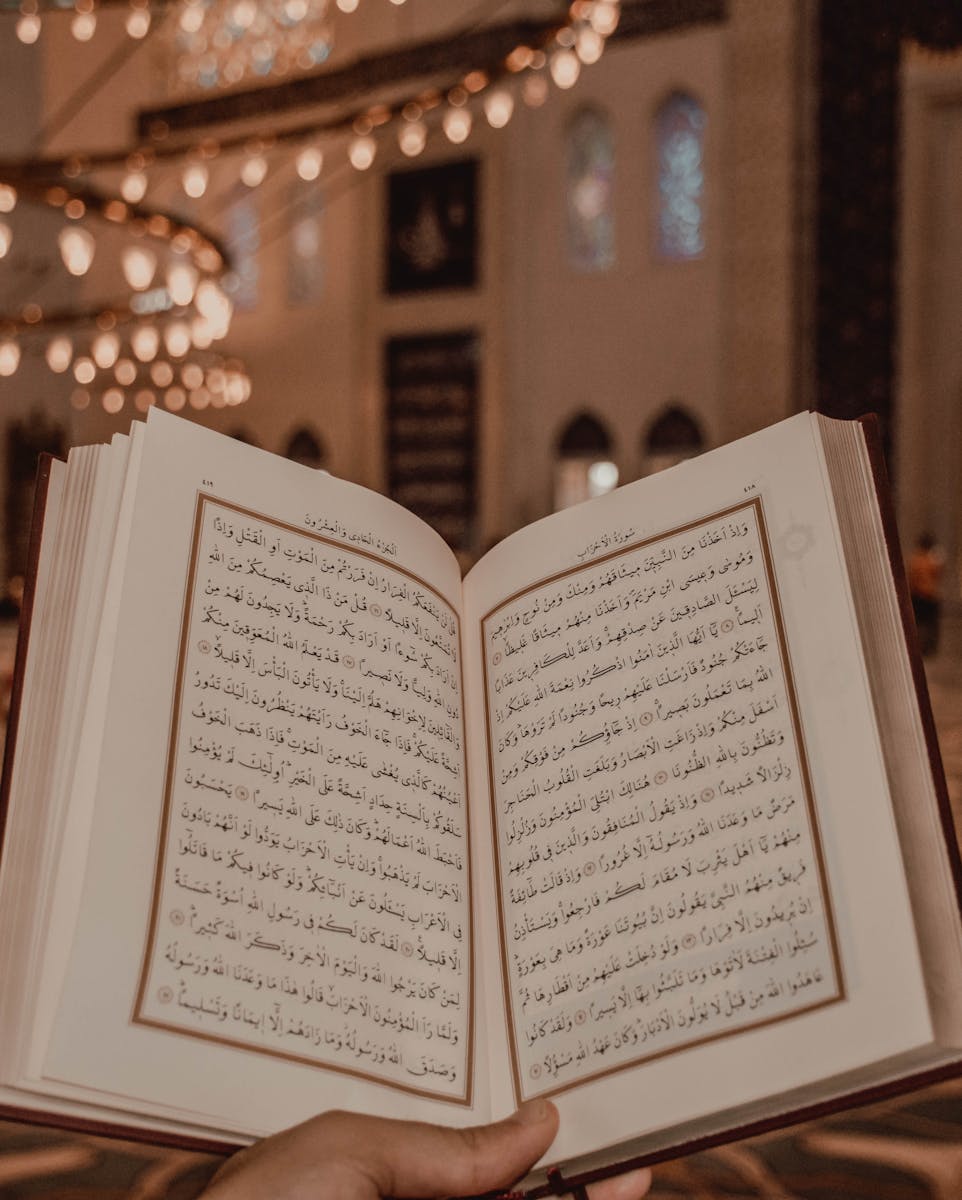 ٤١٨
سُورَةُ الْاَحْزَابِ
وَاِذْ اَخَذْنَا مِنَ النَّبِيّٖنَ مِيثَاقَهُمْ وَمِنْكَ وَمِنْ نُوحٍ وَاِبْرٰهٖيمَ
وَمُوسٰى وَعٖيسَى ابْنِ مَرْيَمَ وَاَخَذْنَا مِنْهُمْ مِيثَاقًا غَلٖيظًا ٧
لِيَسْـَٔلَ الصَّادِقٖينَ عَنْ صِدْقِهِمْ وَاَعَدَّ لِلْكَافِرٖينَ عَذَابًا
اَلٖيمًا ٨ يَٓا اَيُّهَا الَّذٖينَ اٰمَنُوا اذْكُرُوا نِعْمَةَ اللّٰهِ عَلَيْكُمْ اِذْ
جَٓاءَتْكُمْ جُنُودٌ فَاَرْسَلْنَا عَلَيْهِمْ رٖيحًا وَجُنُودًا لَمْ تَرَوْهَا وَكَانَ
اللّٰهُ بِمَا تَعْمَلُونَ بَصٖيرًا ٩ اِذْ جَٓاؤُكُمْ مِنْ فَوْقِكُمْ وَمِنْ
اَسْفَلَ مِنْكُمْ وَاِذْ زَاغَتِ الْاَبْصَارُ وَبَلَغَتِ الْقُلُوبُ الْحَنَاجِرَ
وَتَظُنُّونَ بِاللّٰهِ الظُّنُونَا ١٠ هُنَالِكَ ابْتُلِيَ الْمُؤْمِنُونَ وَزُلْزِلُوا
زِلْزَالًا شَدٖيدًا ١١ وَاِذْ يَقُولُ الْمُنَافِقُونَ وَالَّذٖينَ فٖى قُلُوبِهِمْ
مَرَضٌ مَا وَعَدَنَا اللّٰهُ وَرَسُولُهُٓ اِلَّا غُرُورًا ١٢ وَاِذْ قَالَتْ طَٓائِفَةٌ
مِنْهُمْ يَٓا اَهْلَ يَثْرِبَ لَا مُقَامَ لَكُمْ فَارْجِعُوا وَيَسْتَأْذِنُ
فَرٖيقٌ مِنْهُمُ النَّبِيَّ يَقُولُونَ اِنَّ بُيُوتَنَا عَوْرَةٌ وَمَا هِيَ بِعَوْرَةٍ
اِنْ يُرٖيدُونَ اِلَّا فِرَارًا ١٣ وَلَوْ دُخِلَتْ عَلَيْهِمْ مِنْ اَقْطَارِهَا ثُمَّ
سُئِلُوا الْفِتْنَةَ لَاٰتَوْهَا وَمَا تَلَبَّثُوا بِهَٓا اِلَّا يَسٖيرًا ١٤ وَلَقَدْ كَانُوا
عَاهَدُوا اللّٰهَ مِنْ قَبْلُ لَا يُوَلُّونَ الْاَدْبَارَ وَكَانَ عَهْدُ اللّٰهِ مَسْؤُ۫لًا ١٥
٤١٩
اَلْجُزْءُ الْحَادٖى وَالْعِشْرُونَ
قُلْ لَنْ يَنْفَعَكُمُ الْفِرَارُ اِنْ فَرَرْتُمْ مِنَ الْمَوْتِ اَوِ الْقَتْلِ وَاِذًا
لَا تُمَتَّعُونَ اِلَّا قَلٖيلًا ١٦ قُلْ مَنْ ذَا الَّذٖى يَعْصِمُكُمْ مِنَ اللّٰهِ
اِنْ اَرَادَ بِكُمْ سُٓوءًا اَوْ اَرَادَ بِكُمْ رَحْمَةً وَلَا يَجِدُونَ لَهُمْ مِنْ
دُونِ اللّٰهِ وَلِيًّا وَلَا نَصٖيرًا ١٧ قَدْ يَعْلَمُ اللّٰهُ الْمُعَوِّقٖينَ مِنْكُمْ
وَالْقَٓائِلٖينَ لِاِخْوَانِهِمْ هَلُمَّ اِلَيْنَا وَلَا يَأْتُونَ الْبَأْسَ اِلَّا قَلٖيلًا ١٨
اَشِحَّةً عَلَيْكُمْ فَاِذَا جَٓاءَ الْخَوْفُ رَاَيْتَهُمْ يَنْظُرُونَ اِلَيْكَ تَدُورُ
اَعْيُنُهُمْ كَالَّذٖى يُغْشٰى عَلَيْهِ مِنَ الْمَوْتِ فَاِذَا ذَهَبَ الْخَوْفُ
سَلَقُوكُمْ بِاَلْسِنَةٍ حِدَادٍ اَشِحَّةً عَلَى الْخَيْرِ اُو۬لٰٓئِكَ لَمْ يُؤْمِنُوا
فَاَحْبَطَ اللّٰهُ اَعْمَالَهُمْ وَكَانَ ذٰلِكَ عَلَى اللّٰهِ يَسٖيرًا ١٩ يَحْسَبُونَ
الْاَحْزَابَ لَمْ يَذْهَبُوا وَاِنْ يَأْتِ الْاَحْزَابُ يَوَدُّوا لَوْ اَنَّهُمْ بَادُونَ
فِي الْاَعْرَابِ يَسْـَٔلُونَ عَنْ اَنْبَٓائِكُمْ وَلَوْ كَانُوا فٖيكُمْ مَا قَاتَلُٓوا
اِلَّا قَلٖيلًا ٢٠ لَقَدْ كَانَ لَكُمْ فٖى رَسُولِ اللّٰهِ اُسْوَةٌ حَسَنَةٌ
لِمَنْ كَانَ يَرْجُوا اللّٰهَ وَالْيَوْمَ الْاٰخِرَ وَذَكَرَ اللّٰهَ كَثٖيرًا ٢١
وَلَمَّا رَاَ الْمُؤْمِنُونَ الْاَحْزَابَ قَالُوا هٰذَا مَا وَعَدَنَا اللّٰهُ وَرَسُولُهُ
وَصَدَقَ اللّٰهُ وَرَسُولُهُ وَمَا زَادَهُمْ اِلَّٓا اٖيمَانًا وَتَسْلٖيمًا ٢٢